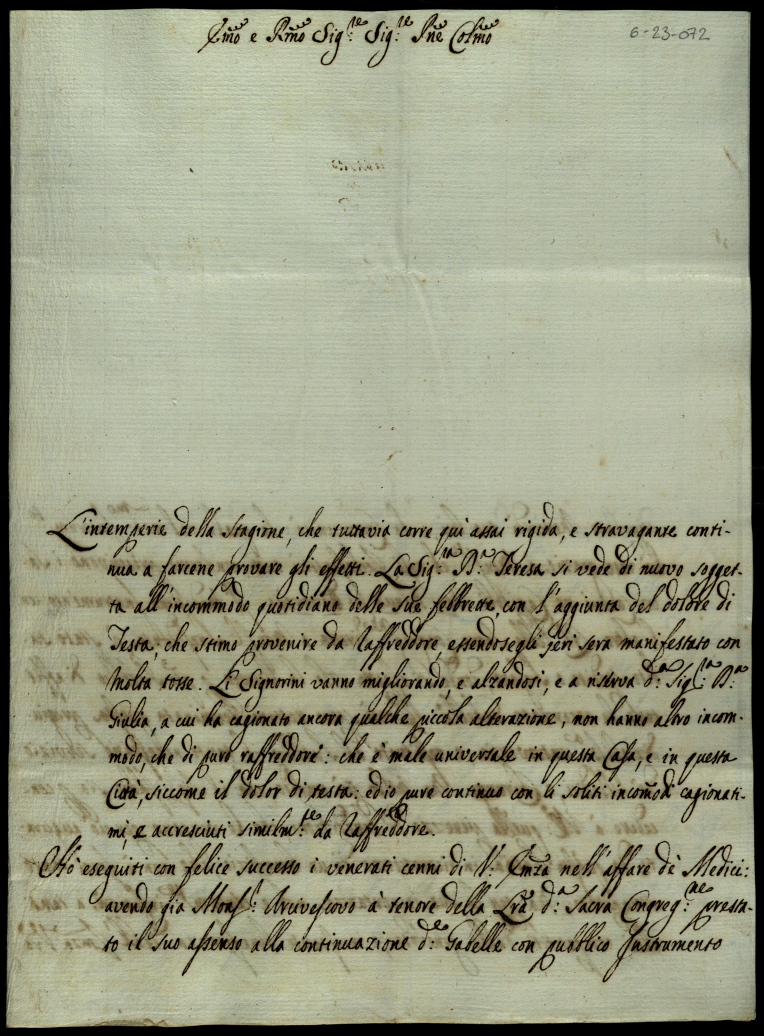 Emo e Rmo Sig.re Sig.re Pne Colmo
6-23-072
L'intemperie della stagione, che tuttavia corre qui assai rigida, e stravagante conti-
nua a farcene provare gli effetti. La Sig.ra B.a Teresa si vede di nuovo sogget-
ta all'incommodo quotidiano delle sue febbrette, con l'aggiunta del dolore di
Testa, che stimo provenire da Raffreddore, essendosegli jeri sera manifestato con
molta tosse. Li Signorini vanno migliorando, e alzandosi, e a riserva d.a Sig.ra B.a
Giulia, a cui ha cagionato ancora qualche piccola alterazione, non hanno altro incom-
modo, che di puro raffreddore: che è male universale in questa Casa, e in questa
Città, siccome il dolor di testa: ed io pure continuo con li soliti incom̃odi cagionati-
mi, e accresciuti similm.te da Raffreddore.
Hò eseguiti con felice successo i venerati cenni di V: Emza nell'affare de Medici:
avendo gia Mons.r Arcivescovo à tenore della Lrã d.a Sacra Congreg.ne presta-
to il suo assenso alla continuazione d.e Gabelle con pubblico Instrumento